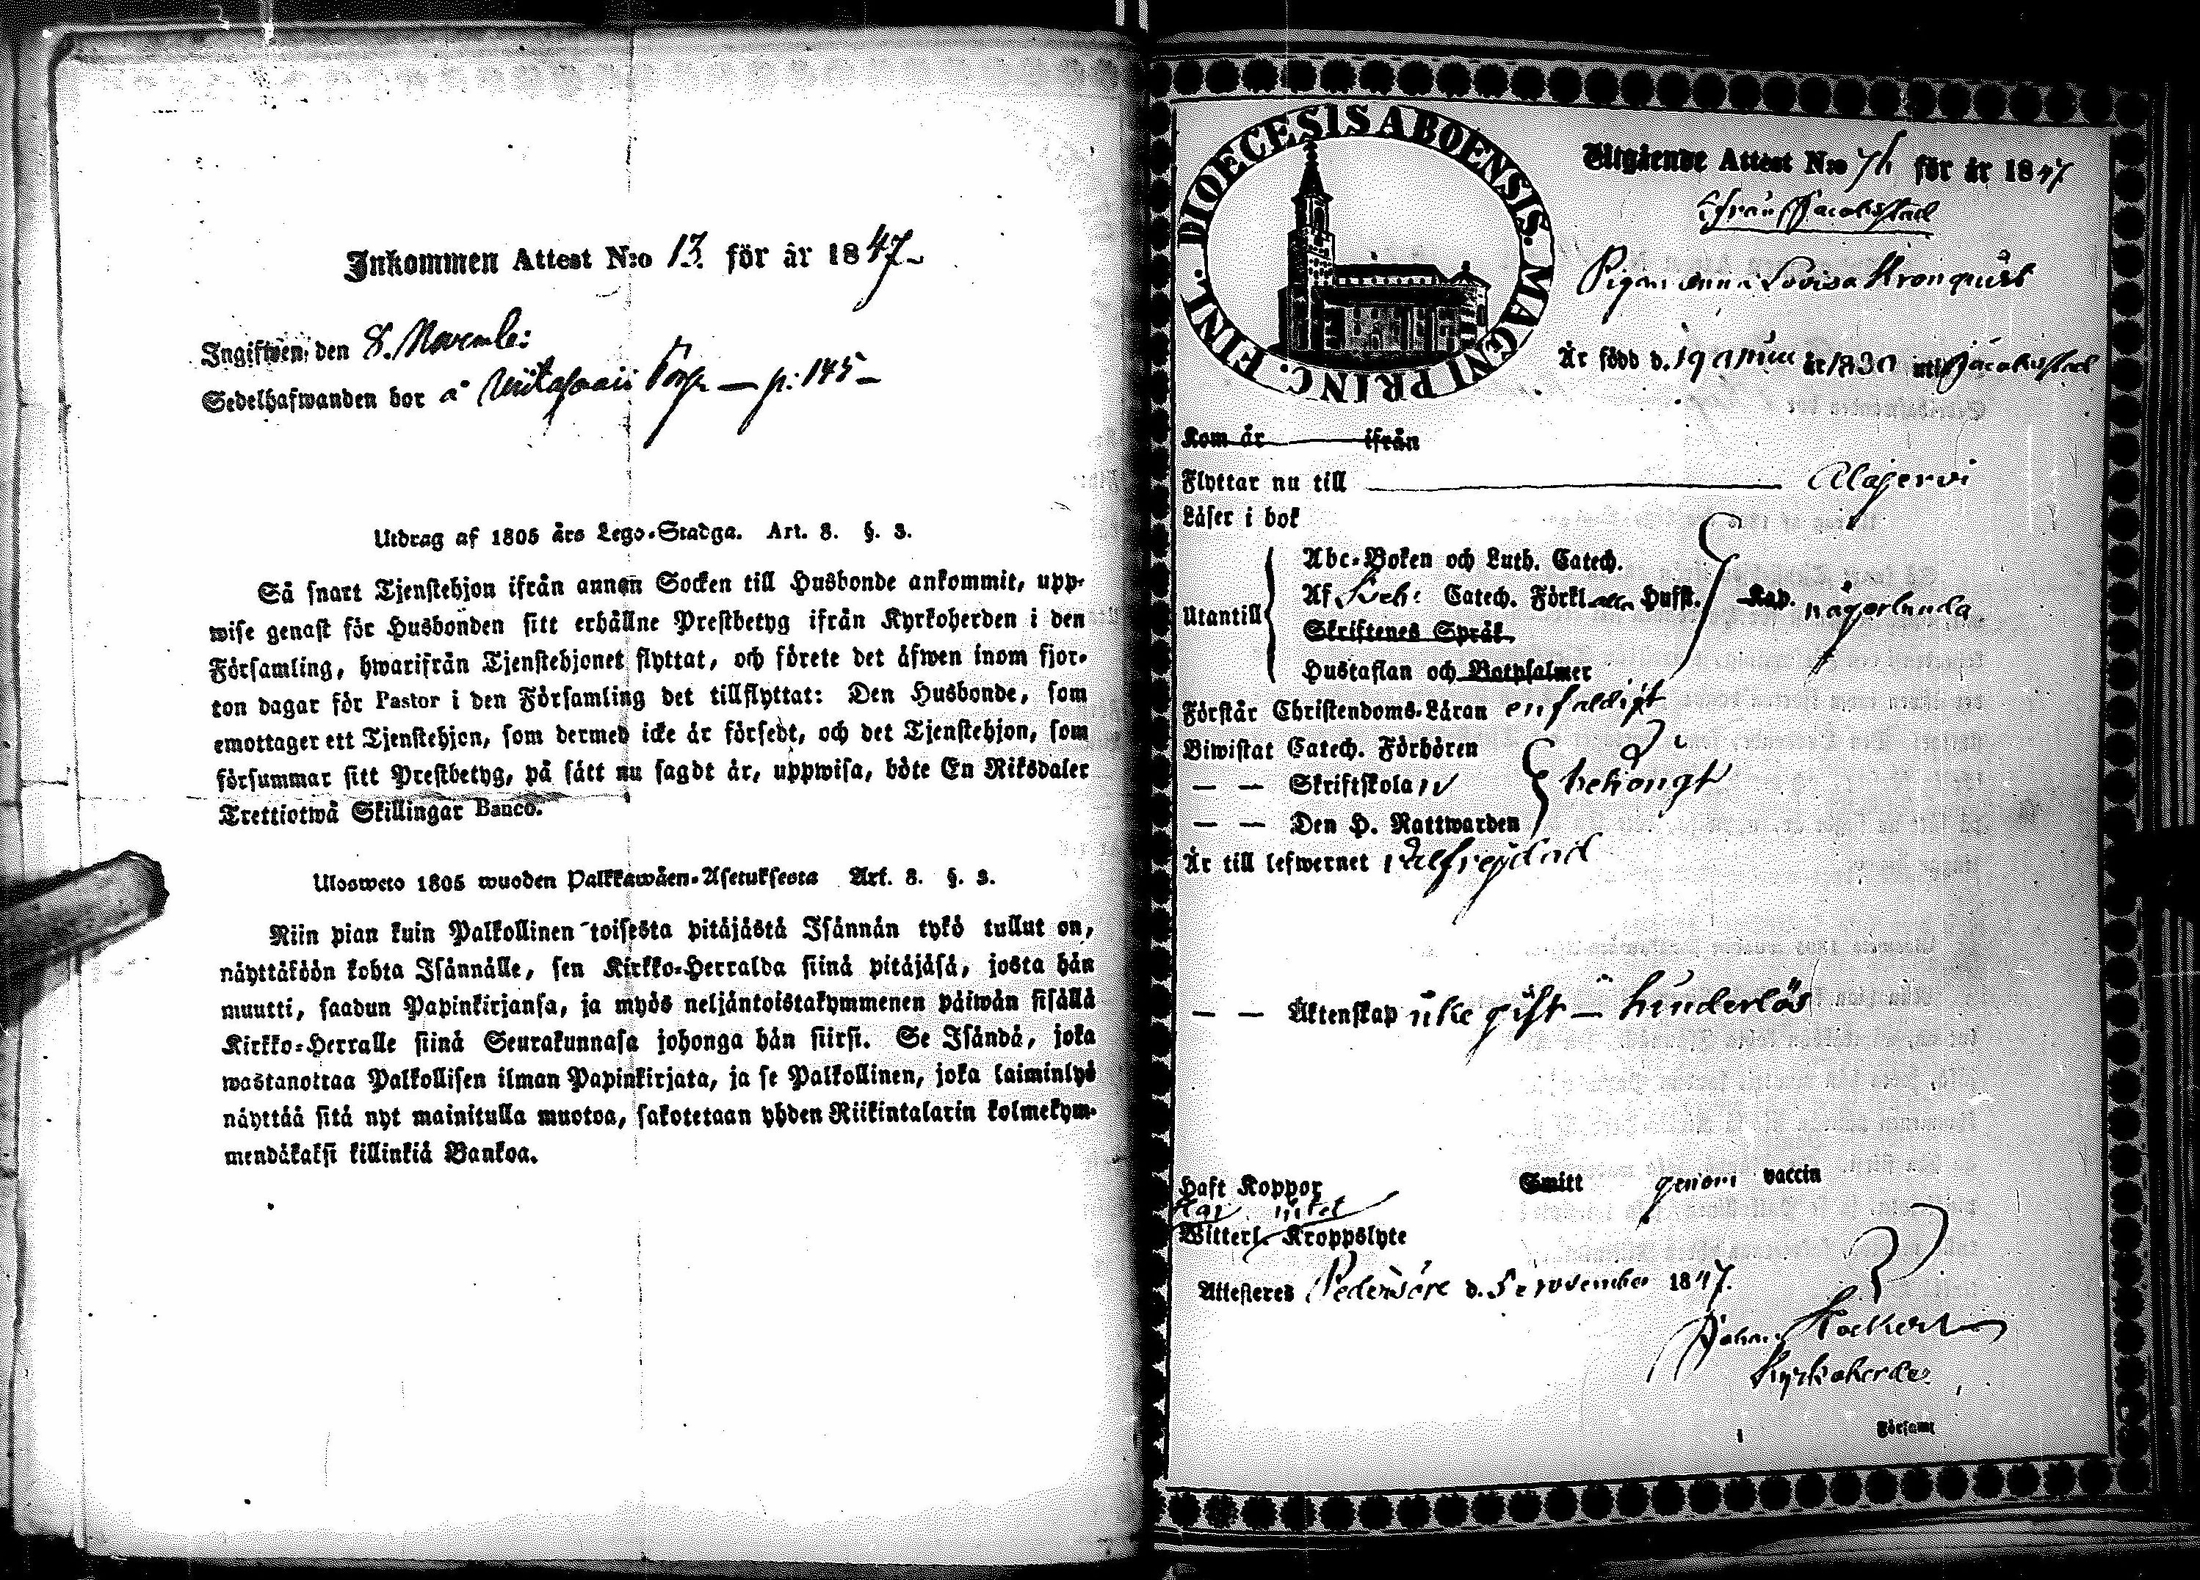 Inkommen Attest N:o 13. för år 1847
Ingifwen den 8. Novemb:
Sedelhafwanden bor å Torp — p: 145 —
Utdrag af 1805 års Lego-Stadga. Art. 8. §. 3.
Så snart Tjenstehjon ifrån annan Socken till Husbonde ankommit, upp-
wise genast för Husbonden sitt erhållne Prestbetyg ifrån Kyrkoherden i den
Församling, hwarifrån Tjenstehjonet flyttat, och förete det åfwen inom fjor-
ton dagar för Pastor i den Församling det tillflyttat: Den Husbonde, som
emottager ett Tjenstehjon, som dermed icke är försedt, och det Tjenstehjon, som
försummar sitt Prestbetyg, på sätt nu sagdt är, uppwisa, böte En Riksdaler
Trettiotwå Skillingar Banco.
Ulosweto 1805 wuoden Palkkawäen-Asetuksesta Art. 8. §. 3.
Niin pian kuin Palkollinen toisesta pitäjästä Isännän tykö tullut on,
näyttäköön kohta Isännälle, sen Kirkko-Herralda siinä pitäjäsä, josta hän
muutti, saadun Papinkirjansa, ja myös neljäntoistakymmenen päiwän sisällä
Kirkko-Herralle siinä Seurakunnasa johonga hän siirsi. Se Isändä, joka
wastanottaa Palkollisen ilman Papinkirjata, ja se Palkollinen, joka laiminlyö
näyttää sitä nyt mainitulla muotoa, sakotetaan yhden Riikintalarin kolmekym-
mendäkaksi killinkiä Bankoa.
DIOECESIS ABOENSIS. MAGNI PRINC. FINL.
Utgående Attest N:o 76 för år 1847
ifrån Jacobstad
Pigan Anna Lovisa Kronqvist
Är född d. 19 år 1830 uti Jacobstad
Kom år ifrån
Flyttar nu till Alajervi
Läser i bok
Abc-Boken och Luth. Catech.
Utantill Af Catech. Förkl. Hufst. Kap. någorlunda
Skriftenes Språk.
Hustaflan och Botpsalmer
Förstår Christendoms-Läran enfaldigt
Biwistat Catech. Förhören
— — Skriftskolan behörigt
— — Den H. Nattwarden
Är till lefwernet välfrejdad
— — Äktenskap icke gift — hinderlös
Haft Koppor Smitt genom vaccin
Har intet
Witterl. Kroppslyte
Attesteres Pedersöre d. 5 november 1847.
Johan
Kyrkoherde
Församl